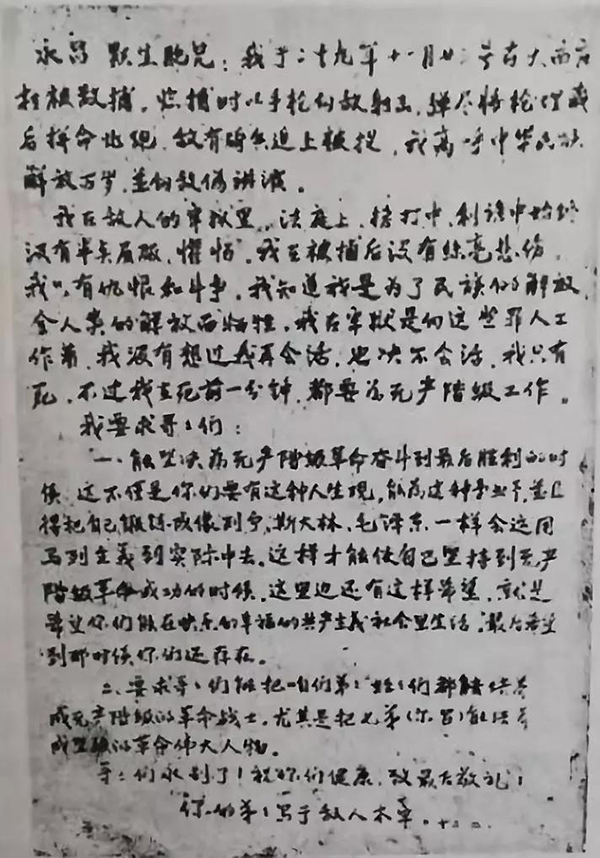 永昌 默生胞兄：我于二十九年十一月廿二号在大西
村被敌捕，临捕时以手枪向敌射击，弹尽将枪埋藏
后拼命北跑，敌有骑兵追上被捉，我高呼中华民族
解放万岁，并向敌伪讲演。
我在敌人的牢狱里，法庭上，拷打中，利诱中始终
没有半点屈服，惧怕，我在被捕后没有丝毫悲伤，
我只有仇恨和斗争，我知道我是为了民族的解放，
全人类的解放而牺牲，我在牢狱是向这些罪人工
作着，我没有想过我再会活，也决不会活，我只有
死，不过我在死前一分钟，都要为无产阶级工作。
我要求哥々们：
一、能坚决为无产阶级革命奋斗到最后胜利的时
候，这不仅是你们要有这种人生观，能为这种事业干，并且
得把自己锻练成像列宁、斯大林、毛泽东一样会运用
马列主义到实际中去，这样才能使自己坚持到无产
阶级革命成功的时候，这里边还有这样希望，就是
希望你们能在快乐的幸福的共产主义社会里生活，最后希望
到那时候你们还存在。
二、要求哥々们能把咱们弟々姪々们都能培养
成无产阶级的革命战士，尤其是把七弟（永昌）能培养
成坚强的革命伟大人物。
哥々们永别了！祝你们健康，致最后敬礼！
你的弟々写于敌人木牢，十二